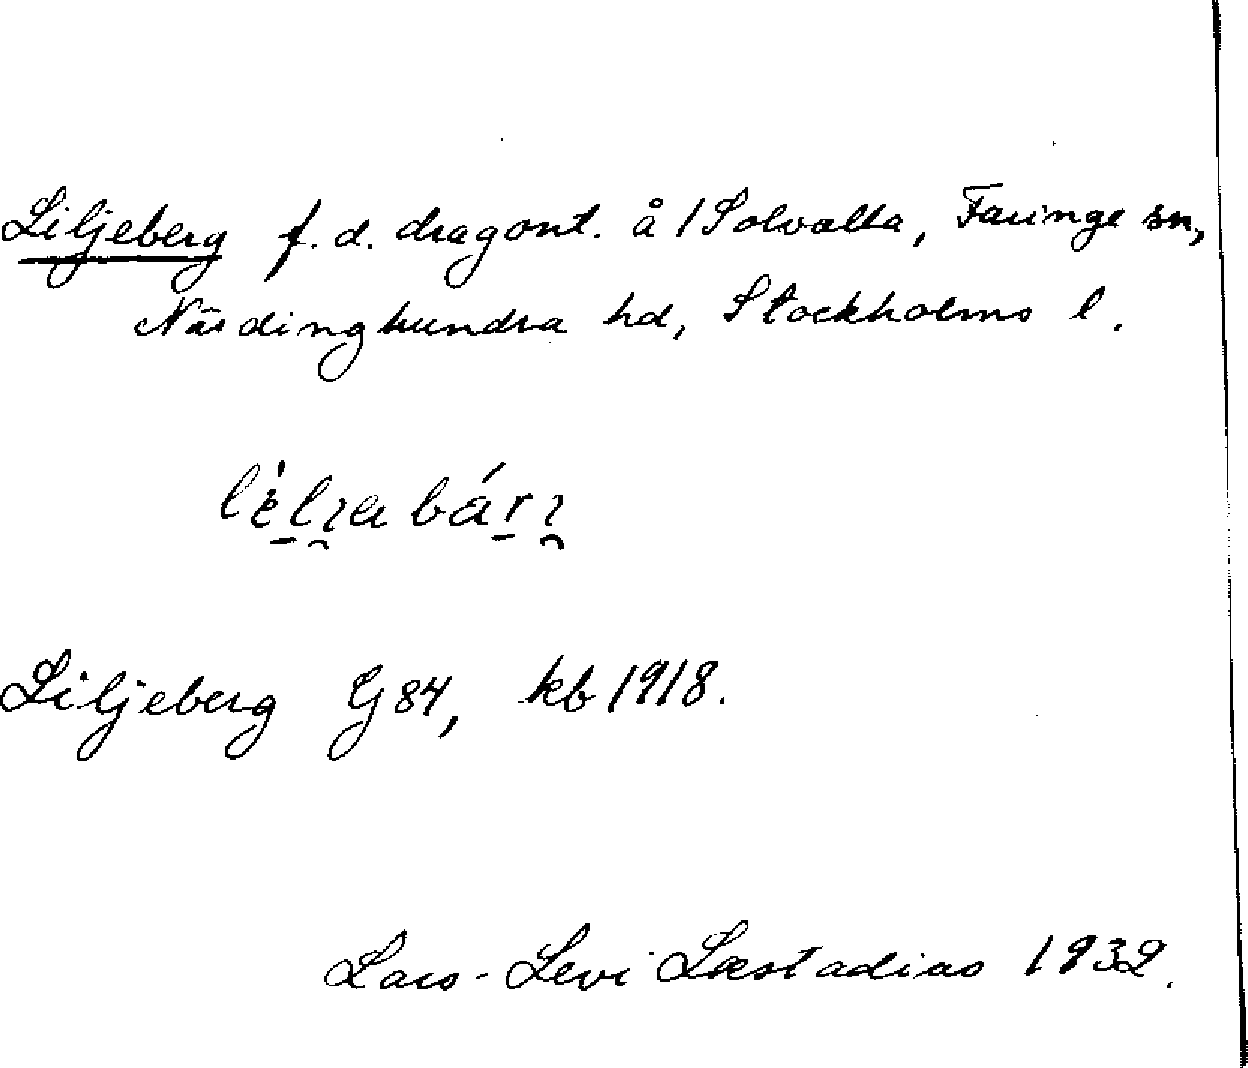 Liljeberg f. d. dragont. å 1 Solvalla, Faringe sn,
Närdinghundra hd, Stockholms l.
Liljeberg G 84, kb 1918.
Lars-Levi Læstadius 1932.